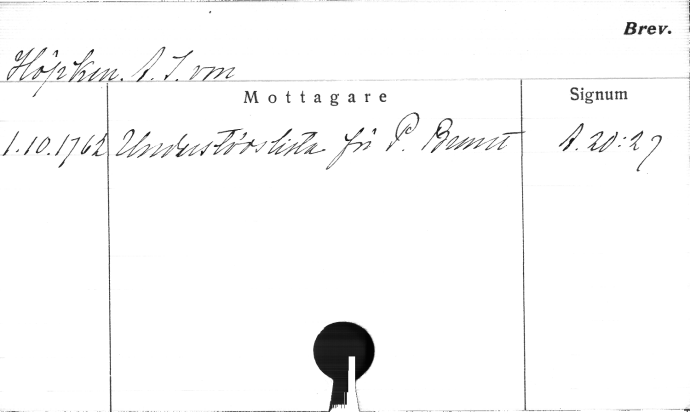 Brev.
Höpken. A. J. von
Mottagare
Signum
1.10.1762 Understödslista för P. Brant A. 20:27